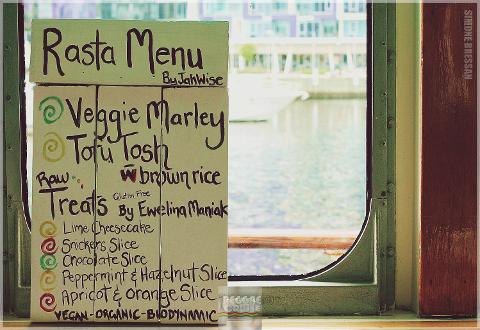 Rasta Menu
By JahWise
Veggie Marley
Tofu Tosh
w brown rice
Raw
Gluten Free
Treats By Ewelina Maniak
Lime Cheesecake
Snickers Slice
Chocolate Slice
Peppermint & Hazelnut Slice
Apricot & orange Slice
VEGAN-ORGANIC-BIODYNAMIC
REGGAE
CRUISE
SIMONE BRESSAN